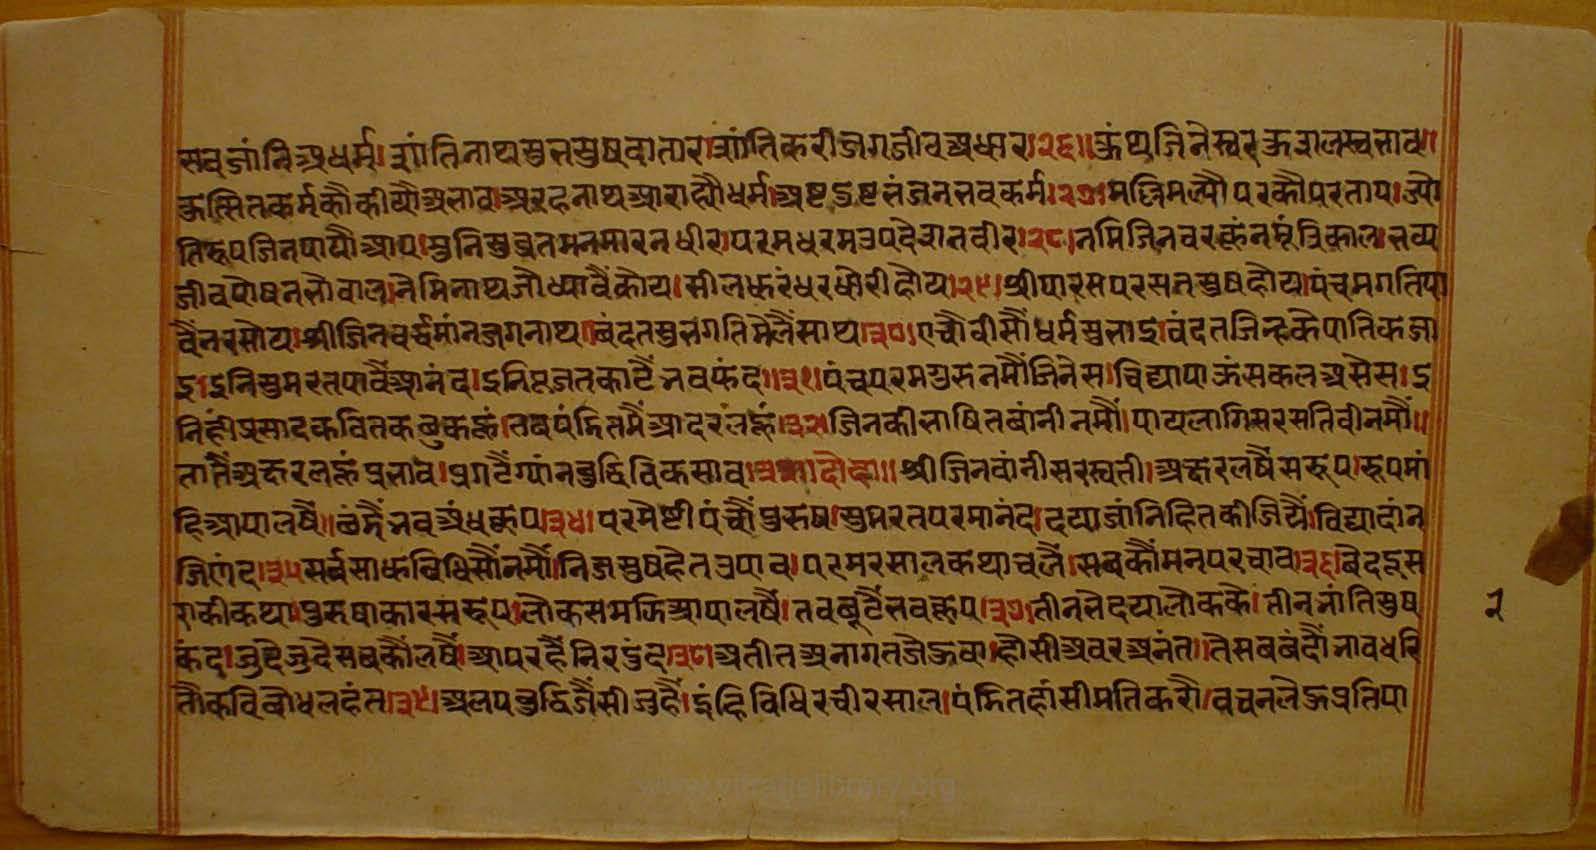 सबजांनिअधर्म।शांतिनाथसुभसुषदातार।शांतिकरीजगजीवअधार।२६॥कुंथजिनेस्वरकुशलस्वभाव॥
कुत्सितकर्मकौकीयौअभाव।अरहनाथआराह्यौधर्म।अष्टदुष्टभंजनभवकर्म।२७।मल्लिमल्यौपरकौपरताप।ज्यो
तिरूपजिनपायौआप।मुनिसुव्रतमनमारनधीर।परमधरमउपदेशतवीर।२८।नमिजिनवरकूंनमूंत्रिकाल।भव्य
जीवपोषनभौवाल।नेमिनाथजौध्यावैकोय।सीलधुरंधरधोरीहोय।२९।श्रीपारसपरसतसुषहोय।पंचमगतिपा
वैनरसोय।श्रीजिनवर्द्धमांनजगनाथ।बंदतसुभगतिमेलैसाथ।३०।एचौवीसौंधर्मसुभाइ।वंदतजिन्हकैपातिकजा
इ।इनिसुमरतपावैआनंद।इनिपूजतकाटैंभवफंद॥३१।पंचपरमगुरुनमौंजिनेस।विद्यापाऊंसकलअसेस।इ
निहीप्रसादकवितकछुकहूं।तबपंडितमैंआदरलहूं।३२।जिनकीभाषितबांनीनमौं।पायलागिसरसतिवीनमौं॥
तातैंअक्षरलहूंप्रभाव।प्रगटैंग्यांनबुद्धिविकसाव।३३।दोहा॥श्रीजिनवांनीसरस्वती।अक्षरलषैसरूप।रूपमां
हिआपालषैं।लंमैंभवअंधकूप।३४।परमेष्टीपंचौंपुरुष।सुमरतपरमानंद।दयाजांनिहितकीजियैं।विद्यादांन
जिणंद।३५सर्वसाधविधिसौंनमौं।निजसुषहैतउपाव।परमरसालकथाचलैं।सबकौंमनपरचाव।३६।बैदहुस
राकीकथा।पुरुषाकारसरूप।लौकसमझिआपालषैं।तवबूटैंभवकूप।३७।तीनभेदयालोककै।तीनभांतिसुष
कंद।जुदेजुदेसबकौंलषैं।आपरहैंनिरदुंद।३८।अतीतअनागतजेहूवा।होसीअवरअनंत।तेसबबंदौंभावधरि
तौकविबोधलहंत।३९।अलपबुद्धिजैंसीजुहैं।इंहिविधिरचीरसाल।पंडितहासीमतिकरौ।बचनलेहुप्रतिपा
२